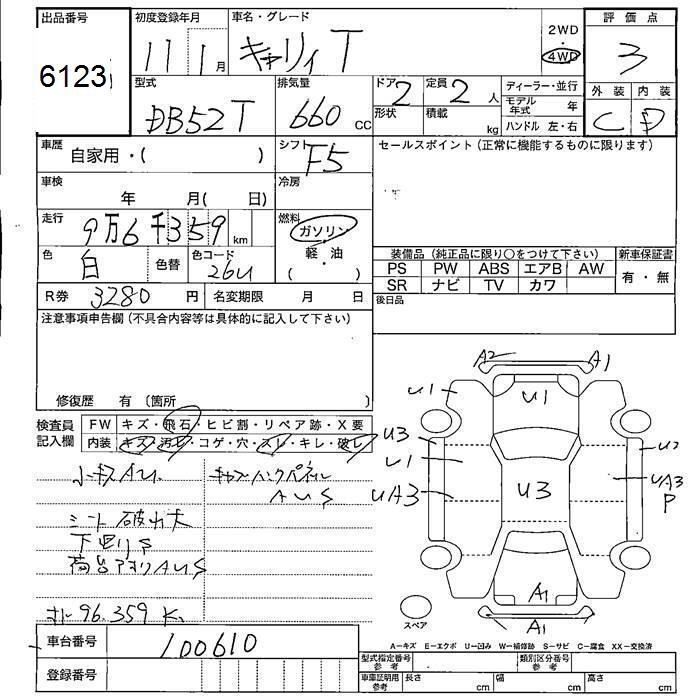 出品番号 初度登録年月 車名・グレード 2WD 評価点
6123 11 1月 キャリィT 4WD 3
型式 排気量 ドア 2 定員 2人 ディーラー・並行 外装 内装
DB52T 660 CC 形状 積載 kg モデル年式 年 C D
ハンドル 左・右
車歴 自家用・( ) シフト F5 セールスポイント(正常に機能するものに限ります)
車検 年 月( 日) 冷房
走行 9万6千359km 燃料 ガソリン
軽・油
( )
色 白 色替 色コード 26U
装備品(純正品に限り○をつけて下さい) 新車保証書
PS PW ABS エアB AW 有・無
SR ナビ TV カワ
R券 3280円 名変期限 月 日 後日品
注意事項申告欄(不具合内容等は具体的に記入して下さい)
修復歴 有(箇所 )
検査員記入欄 FW キズ・飛石・ヒビ割・リペア跡・X要
内装 キズ・汚レ・コゲ・穴・スレ・キレ・破レ
AU
AUS
シート破れ大
下回りS
荷台アオリAUS
96.359 K
A2 A1
U1 U1
U3 U2
U1 U3 UA3
UA3 P
A1
スペア A1
A−キズ E−エクボ U−凹み W−補修跡 S−サビ C−腐食 XX−交換済
車台番号 100610
登録番号
型式指定番号 参考 類別区分番号 参考
車庫証明用 参考 長さ cm 幅 cm 高さ cm